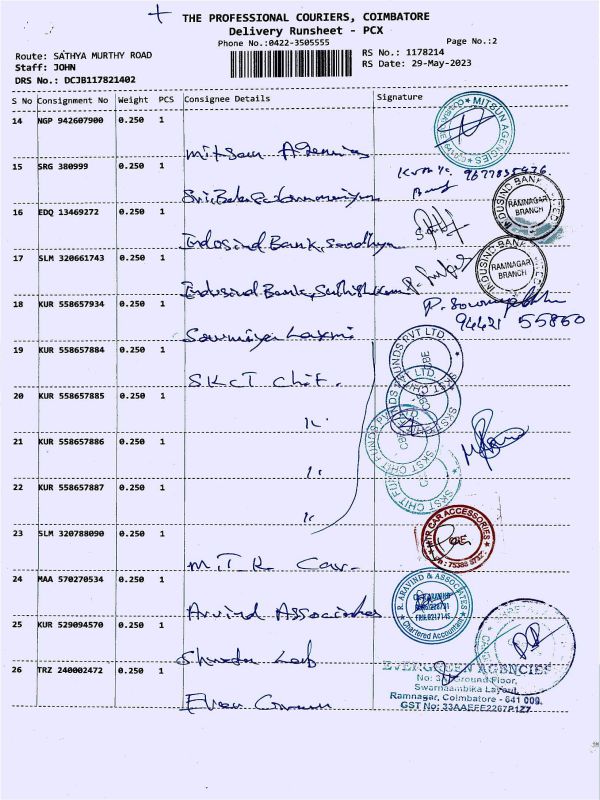 THE PROFESSIONAL COURIERS, COIMBATORE
Delivery Runsheet - PCX
Phone No.:0422-3505555
Page No.:2
Route: SATHYA MURTHY ROAD
RS No.: 1178214
Staff: JOHN
RS Date: 29-May-2023
DRS No.: DCJB117821402
S No Consignment No Weight PCS Consignee Details Signature
14 NGP 942607900 0.250 1
Mitsun Agencies
MITSUN AGENCIES
15 SRG 380999 0.250 1
16 EDQ 13469272 0.250 1
Indosind Bank, Sandhya
INDUSIND BANK
RAMNAGAR
BRANCH
17 SLM 320661743 0.250 1
Indusind Bank,
INDUSIND BANK
RAMNAGAR
BRANCH
18 KUR 558657934 0.250 1
Sowmiya Laxmi
94421 55860
19 KUR 558657884 0.250 1
SKCT Chit.
SKST CHIT FUNDS PVT LTD
CBE
20 KUR 558657885 0.250 1
21 KUR 558657886 0.250 1
22 KUR 558657887 0.250 1
23 SLM 320788090 0.250 1
M.T.R Car.
MTR CAR ACCESSORIES
24 MAA 570270534 0.250 1
Arvind Associates
R. ARAVIND & ASSOCIATES
Chartered Accountants
25 KUR 529094570 0.250 1
Shweta Lab
26 TRZ 240002472 0.250 1
EVERGREEN AGENCIES
Ground Floor,
Swarnaambika Layout,
Ramnagar, Coimbatore - 641 009.
GST No: 33AAEFE2267P1Z7
Ever Green